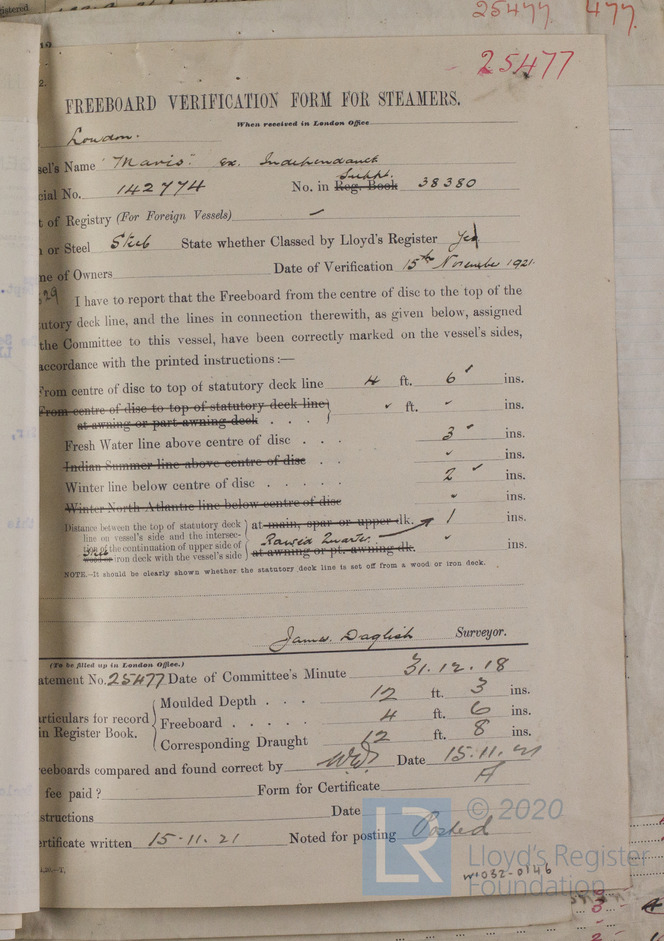 istered
25477. 477.
19
25477
2.
FREEBOARD VERIFICATION FORM FOR STEAMERS.
When received in London Office
London.
sel's Name "Mavis" ex. Independance
Suppt.
cial No. 142774 No. in Reg. Book 38380
t of Registry (For Foreign Vessels)
or Steel Steel State whether Classed by Lloyd's Register Yes
ne of Owners Date of Verification 15th November 1921.
29 I have to report that the Freeboard from the centre of disc to the top of the
utory deck line, and the lines in connection therewith, as given below, assigned
the Committee to this vessel, have been correctly marked on the vessel's sides,
accordance with the printed instructions:—
From centre of disc to top of statutory deck line 4 ft. 6 ins.
From centre of disc to top of statutory deck line ft. ins.
at awning or part awning deck . . .
Fresh Water line above centre of disc . . . 3 ins.
Indian Summer line above centre of disc . . ins.
Winter line below centre of disc . . . . . 2 ins.
Winter North Atlantic line below centre of disc ins.
Distance between the top of statutory deck at main, spar or upper dk. 1 ins.
line on vessel's side and the intersec- Raised Quarter
tion of the continuation of upper side of
Steel wood or iron deck with the vessel's side at awning or pt. awning dk. ins.
NOTE.—It should be clearly shown whether the statutory deck line is set off from a wood or iron deck.
James Daglish Surveyor.
(To be filled up in London Office.)
atement No. 25477 Date of Committee's Minute 31.12.18
Moulded Depth . . . 12 ft. 3 ins.
articulars for record Freeboard . . . . . 4 ft. 6 ins.
in Register Book.
Corresponding Draught 12 ft. 8 ins.
eeboards compared and found correct by Date 15.11.21
fee paid? Form for Certificate A
structions Date
rtificate written 15.11.21 Noted for posting Posted
LR © 2020
Lloyd's Register
Foundation
W032-0146